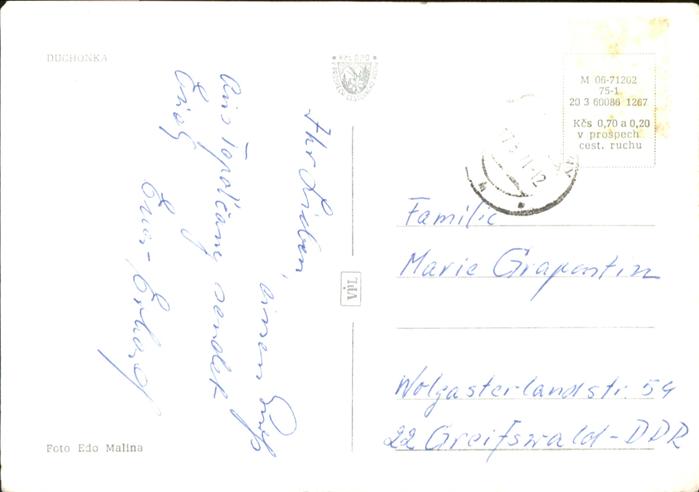 DUCHONKA
Kčs 0,20
M 06-71202
75-1
20 3 60086 1267
Kčs 0,70 a 0,20
v prospech
cest. ruchu
Ihr Lieben,
einen Gruß
aus Topolčany sendet
Euch
Euer Erhard
VPL
Familie
Marie Grapentin
Wolgasterlandstr. 54
22 Greifswald-DDR
Foto Edo Malina